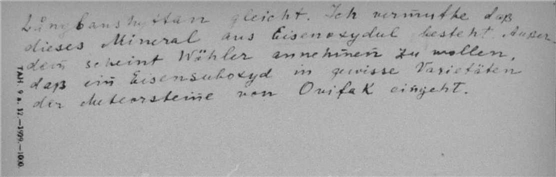 Långbanshyttan gleicht. Ich vermuthe daß
dieses Mineral aus Eisenoxydul besteht. Außer
dem scheint Wöhler annehmen zu wollen,
daß ein Eisensuboxyd in gewisse Varietäten
der Meteorsteine von Ovifak eingeht.